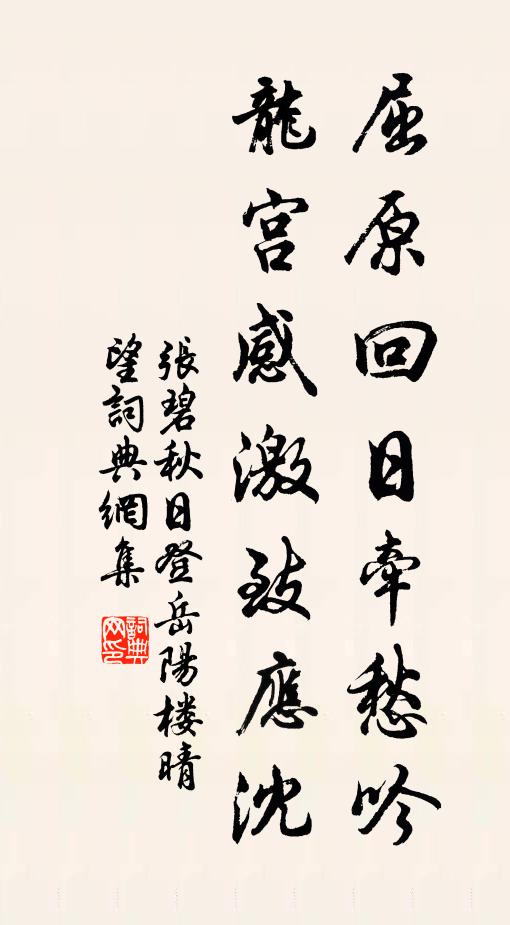 屈原回日牽愁吟
龍宮感激致應沈
張碧秋日登岳陽楼晴
望詞典網集
詞典
网印